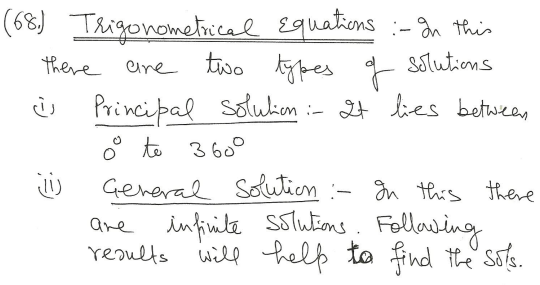 (68.) Trigonometrical Equations :- In this
there are two types of solutions
(i) Principal Solution :- It lies between
0° to 360°
(ii) General Solution :- In this there
are infinite solutions. Following
results will help to find the sols.